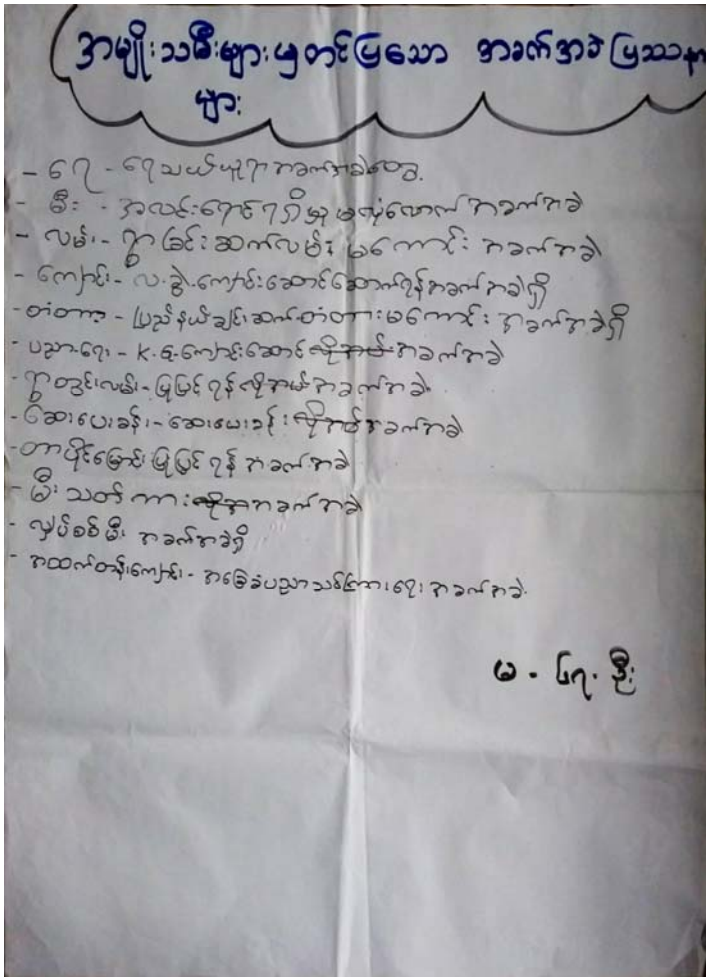 အမျိုးသမီးများမှတင်ပြသော အခက်အခဲ ပြဿနာ
များ
- ရေ - ရေသယ်ယူရာ အခက်အခဲတွေ့
- မီး - အလင်းရောင်ရရှိမှု မလုံလောက် အခက်အခဲ
- လမ်း - ရွာချင်းဆက်လမ်း မကောင်း အခက်အခဲ
- ကျောင်း - လ.ခွဲ.ကျောင်းဆောင်ဆောက်ရန် အခက်အခဲရှိ
- တံတား - ပြည်နယ်ချင်းဆက်တံတားမကောင်း အခက်အခဲရှိ
- ပညာရေး - K.G.ကျောင်းဆောင် အခက်အခဲ
- ရွာတွင်းလမ်း - ပြုပြင်ရန် အခက်အခဲ
- ဆေးပေးခန်း - ဆေးပေးခန်း အခက်အခဲ
- တာပိုင်မြောင်းပြုပြင်ရန် အခက်အခဲ
- မီးသတ်ကား အခက်အခဲ
- လျှပ်စစ်မီး အခက်အခဲရှိ
- အထက်တန်းကျောင်း - အခြေခံပညာသင်ကြားရေး အခက်အခဲ
မ . ရေ . ဦး